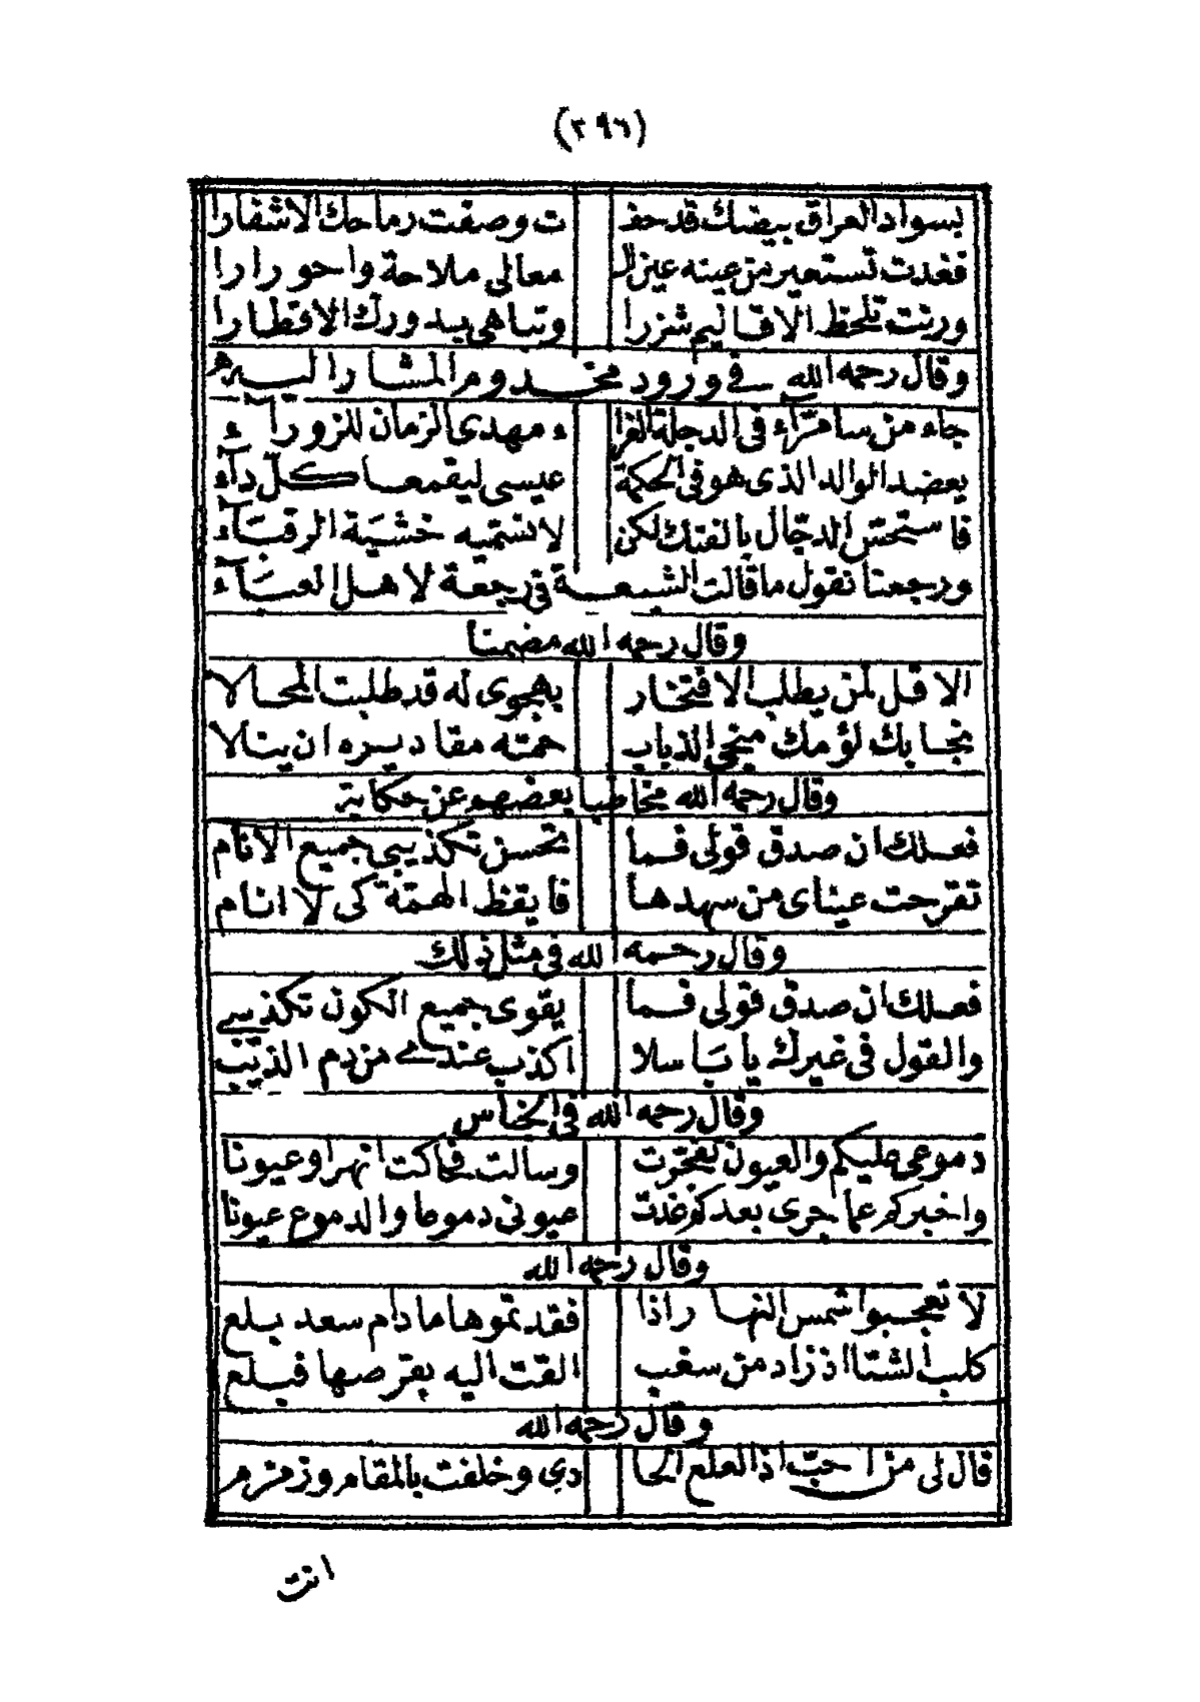 (٢٩٦)
بسواد العراق ببيضك قد حفـ ت وصفت رماحك الاشفارا
فغدت تستعير من عينه عين الـ معالى ملاحة واحورارا
ورنت تلحظ الاقاليم شزرا وتباهى ببدورك الاقطارا
وقال رحمه الله فى ورود مخدوم المشار اليه
جاء من سامرّاء فى الدجلة الغرا ء مهدى الزمان للزوراء
يعضد الوالد الذى هو فى الحكمة عيسى ليقمعا كلّ دآء
فاستحسّ الدجّال بالفتك لكن لا تسمّيه خشية الرقبَاء
ورجعنا نقول ما قالت الشيعة فى رجعة لاهل العبَآء
وقال رحمه الله مضمنا
الا قل لمن يطلب الافتخار بهجوى له قد طلبت المحالا
نجا بك لؤمك منجى الذباب حمته مقاديره ان ينالا
وقال رحمه الله مخاطبا بعضهم عن حكاية
فعلك ان صدق قولى فما تحسن تكذيبى جميع الانام
تقرحت عيناى من سهدها فايقظ الهمّة كى لا انام
وقال رحمه الله فى مثل ذلك
فعلك ان صدق قولى فما يقوى جميع الكون تكذيبى
والقول فى غيرك يا باسلا اكذب عندى من دم الذيب
وقال رحمه الله فى الجناس
دموعى عليكم والعيون تفجرت وسالت فحاكت انهرا وعيونا
واخبركم عما جرى بعدكم غدت عيونى دموعا والدموع عيونا
وقال رحمه الله
لا تعجبوا شمس النهار اذا فقدتموها مادام سعد بلع
كلب الشتا اذ زاد من سغب القت اليه بقرصها فبلع
وقال رحمه الله
قال لى من احبّ اذ العلع الحا دى وخلفت بالمقام وزمزم
انت